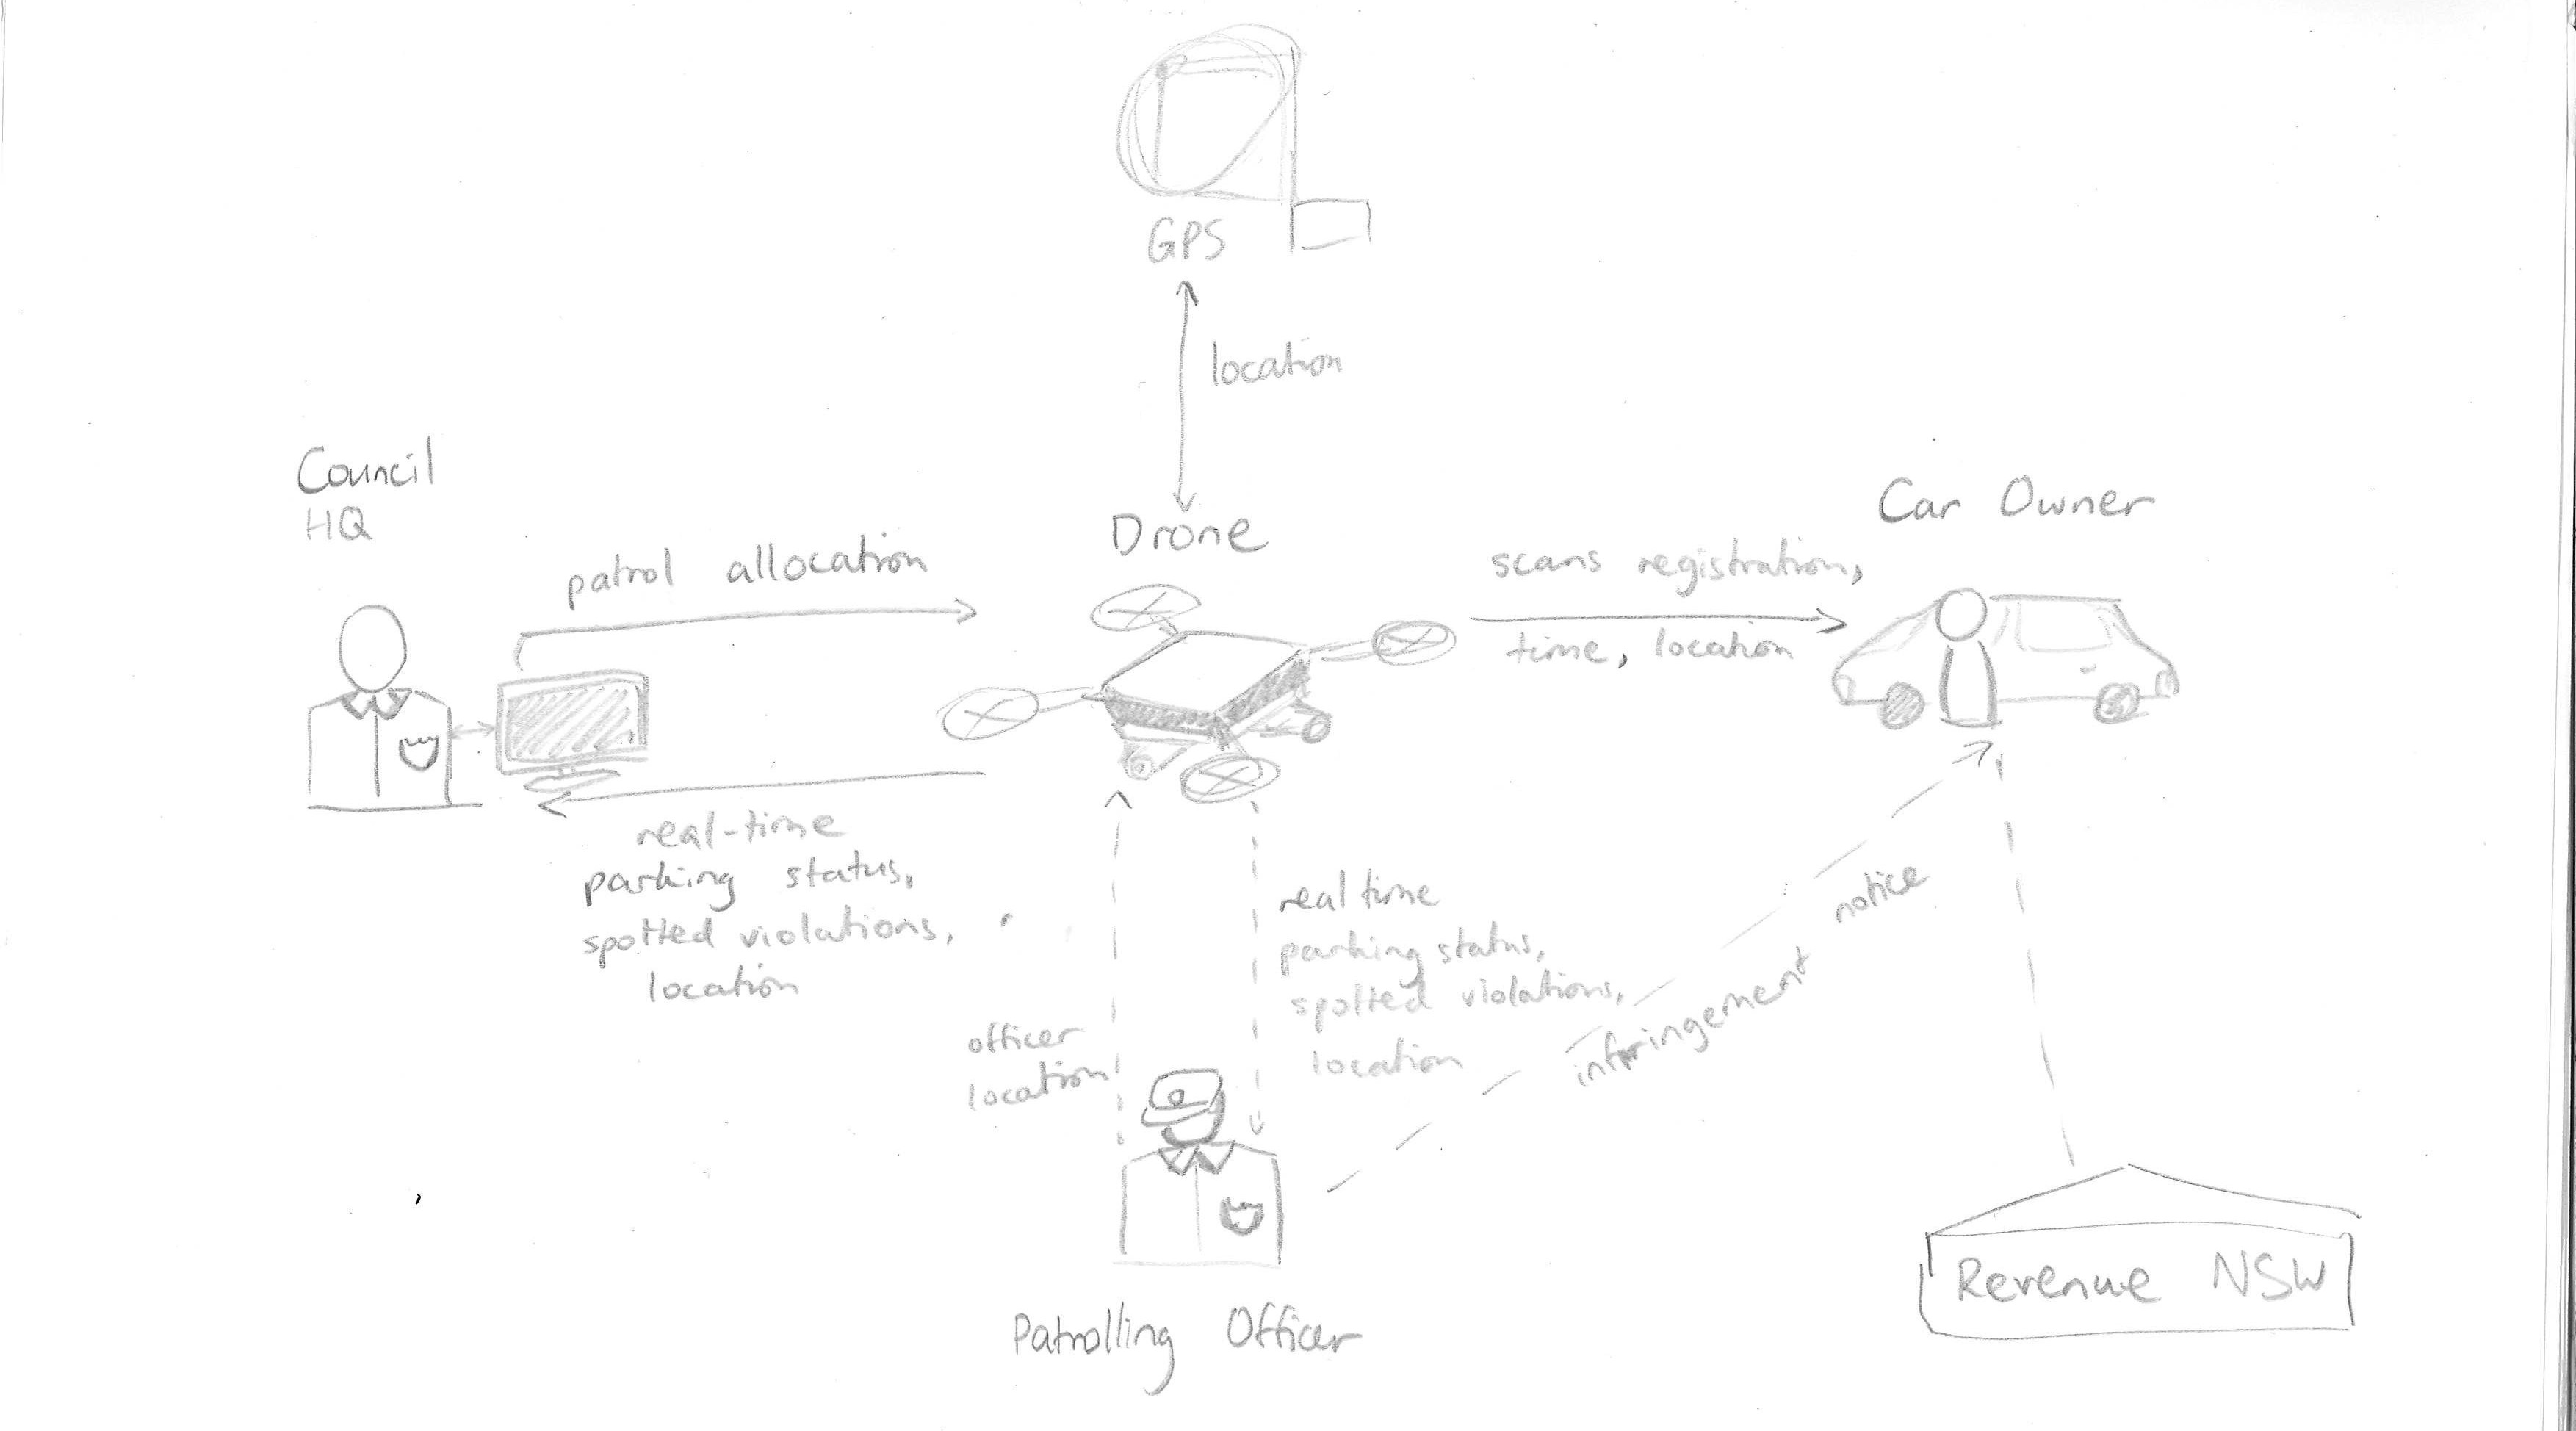 GPS
location
Council
HQ
patrol allocation
Drone
scans registration,
time, location
Car Owner
real-time
parking status,
spotted violations,
location
officer
location
real time
parking status,
spotted violations,
location
infringement notice
Patrolling Officer
Revenue NSW